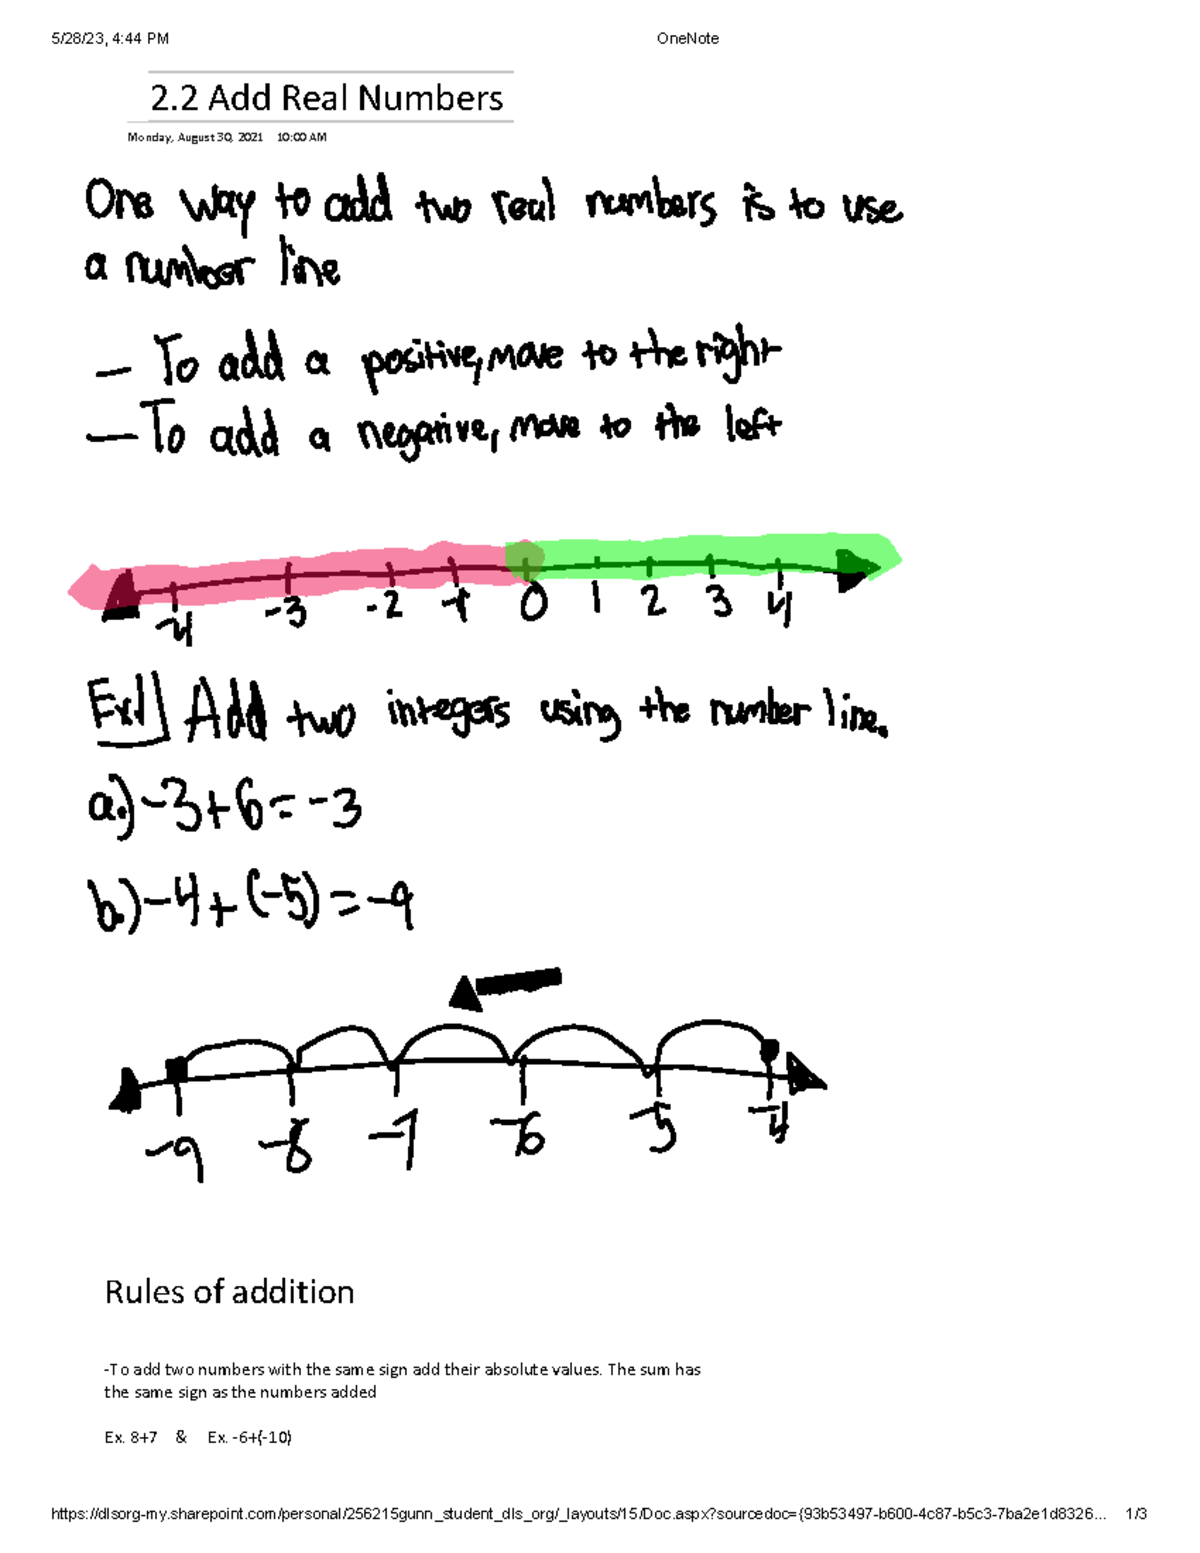 5/28/23, 4:44 PM OneNote
2.2 Add Real Numbers
Monday, August 30, 2021 10:00 AM
One way to add two real numbers is to use
a number line
- To add a positive, move to the right
- To add a negative, move to the left
-4 -3 -2 -1 0 1 2 3 4
Ex1 Add two integers using the number line.
a.) -3+6=-3
b.) -4+(-5)=-9
-9 -8 -7 -6 -5 -4
Rules of addition
-To add two numbers with the same sign add their absolute values. The sum has
the same sign as the numbers added
Ex. 8+7 & Ex. -6+(-10)
https://dlsorg-my.sharepoint.com/personal/256215gunn_student_dls_org/_layouts/15/Doc.aspx?sourcedoc={93b53497-b600-4c87-b5c3-7ba2e1d8326... 1/3